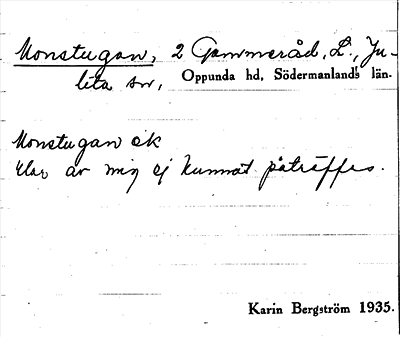 Monstugan, 2 Gammelråd, L., Ju-
lita sn, Oppunda hd, Södermanlands län.
Monstugan ek
Har av mig ej kunnat påträffas.
Karin Bergström 1935.